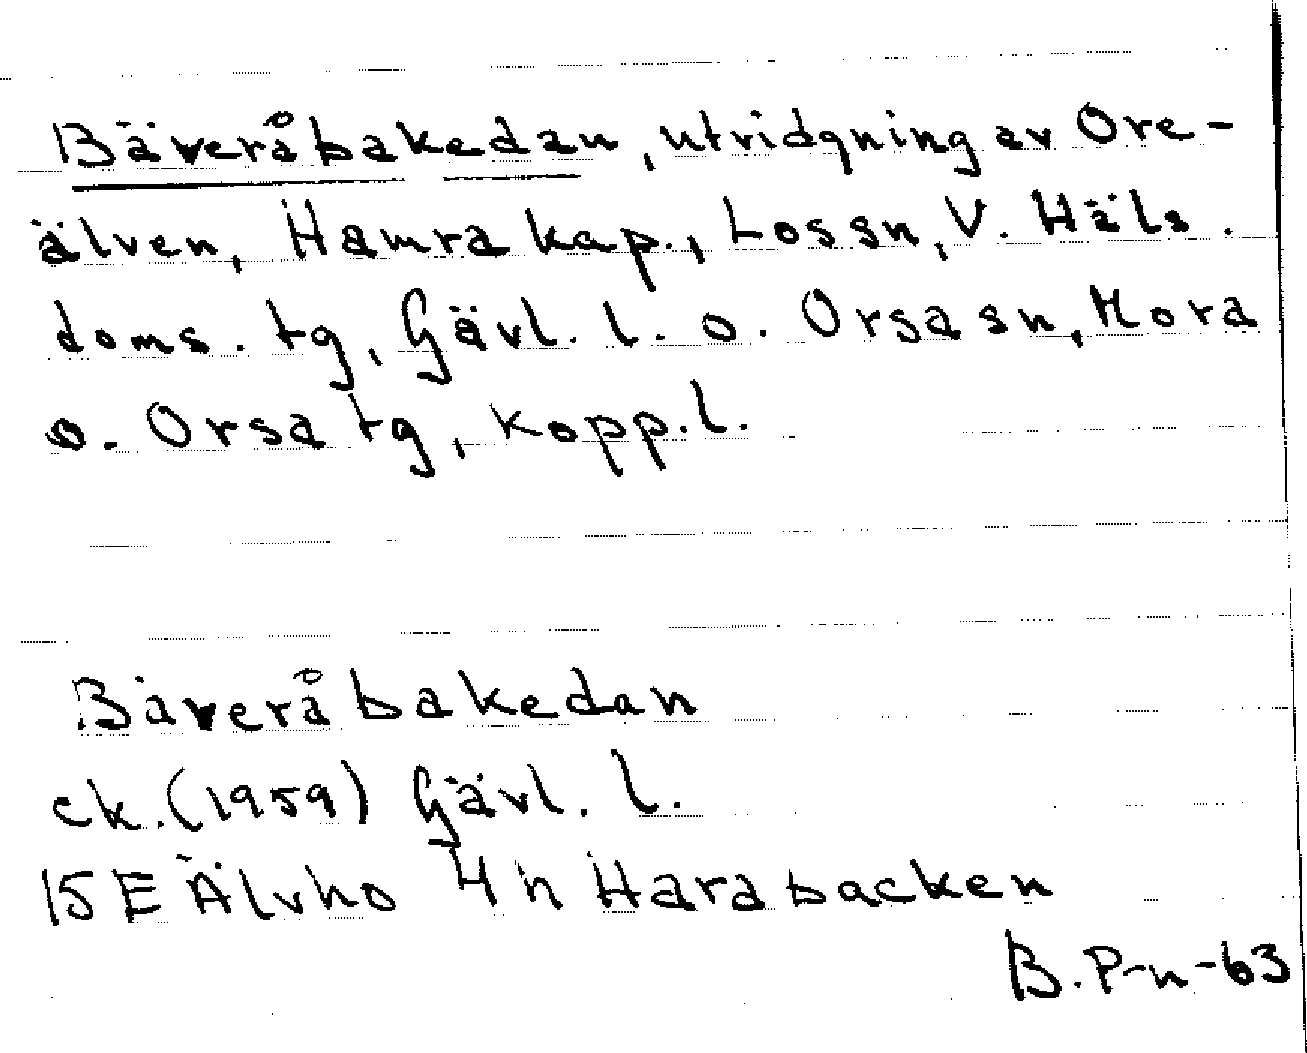 Bäveråbakedan, utvidgning av Ore-
älven, Hamra kap., Los sn, V. Häls.
doms. tg, Gävl. l. o. Orsa sn, Mora
o. Orsa tg, Kopp. l.
Bäveråbakedan
ek. (1959) Gävl. l.
15 E Älvho 4 h Harabacken
B. P-n -63